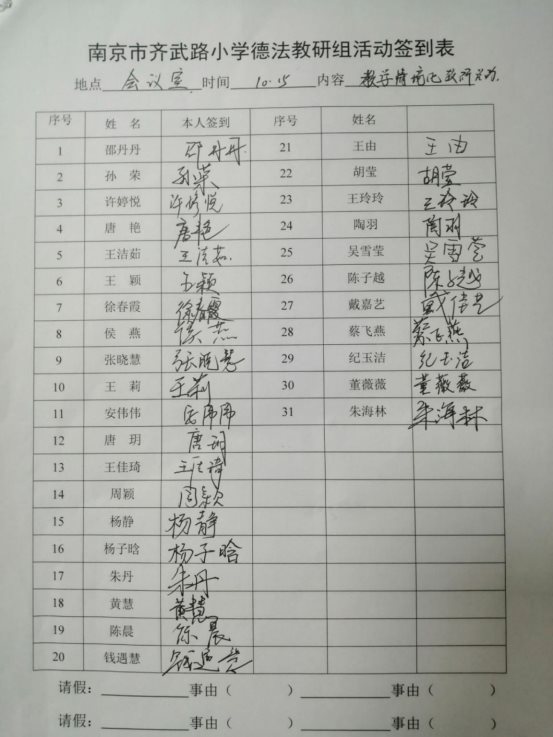 南京市齐武路小学德法教研组活动签到表
地点 会议室 时间 10.15 内容 教学情境化教研活动
序号 姓名 本人签到 序号 姓名
1 邵丹丹 邵丹丹 21 王由 王由
2 孙荣 孙荣 22 胡莹 胡莹
3 许婷悦 许婷悦 23 王玲玲 王玲玲
4 唐艳 唐艳 24 陶羽 陶羽
5 王洁茹 王洁茹 25 吴雪莹 吴雪莹
6 王颖 王颖 26 陈子越 陈子越
7 徐春霞 徐春霞 27 戴嘉艺 戴佳艺
8 侯燕 侯燕 28 蔡飞燕 蔡飞燕
9 张晓慧 张晓慧 29 纪玉洁 纪玉洁
10 王莉 王莉 30 董薇薇 董薇薇
11 安伟伟 安伟伟 31 朱海林 朱海林
12 唐玥 唐玥
13 王佳琦 王佳琦
14 周颖 周颖
15 杨静 杨静
16 杨子晗 杨子晗
17 朱丹 朱丹
18 黄慧 黄慧
19 陈晨 陈晨
20 钱遇慧 钱遇慧
请假：事由（ ）事由（ ）
请假：事由（ ）事由（ ）